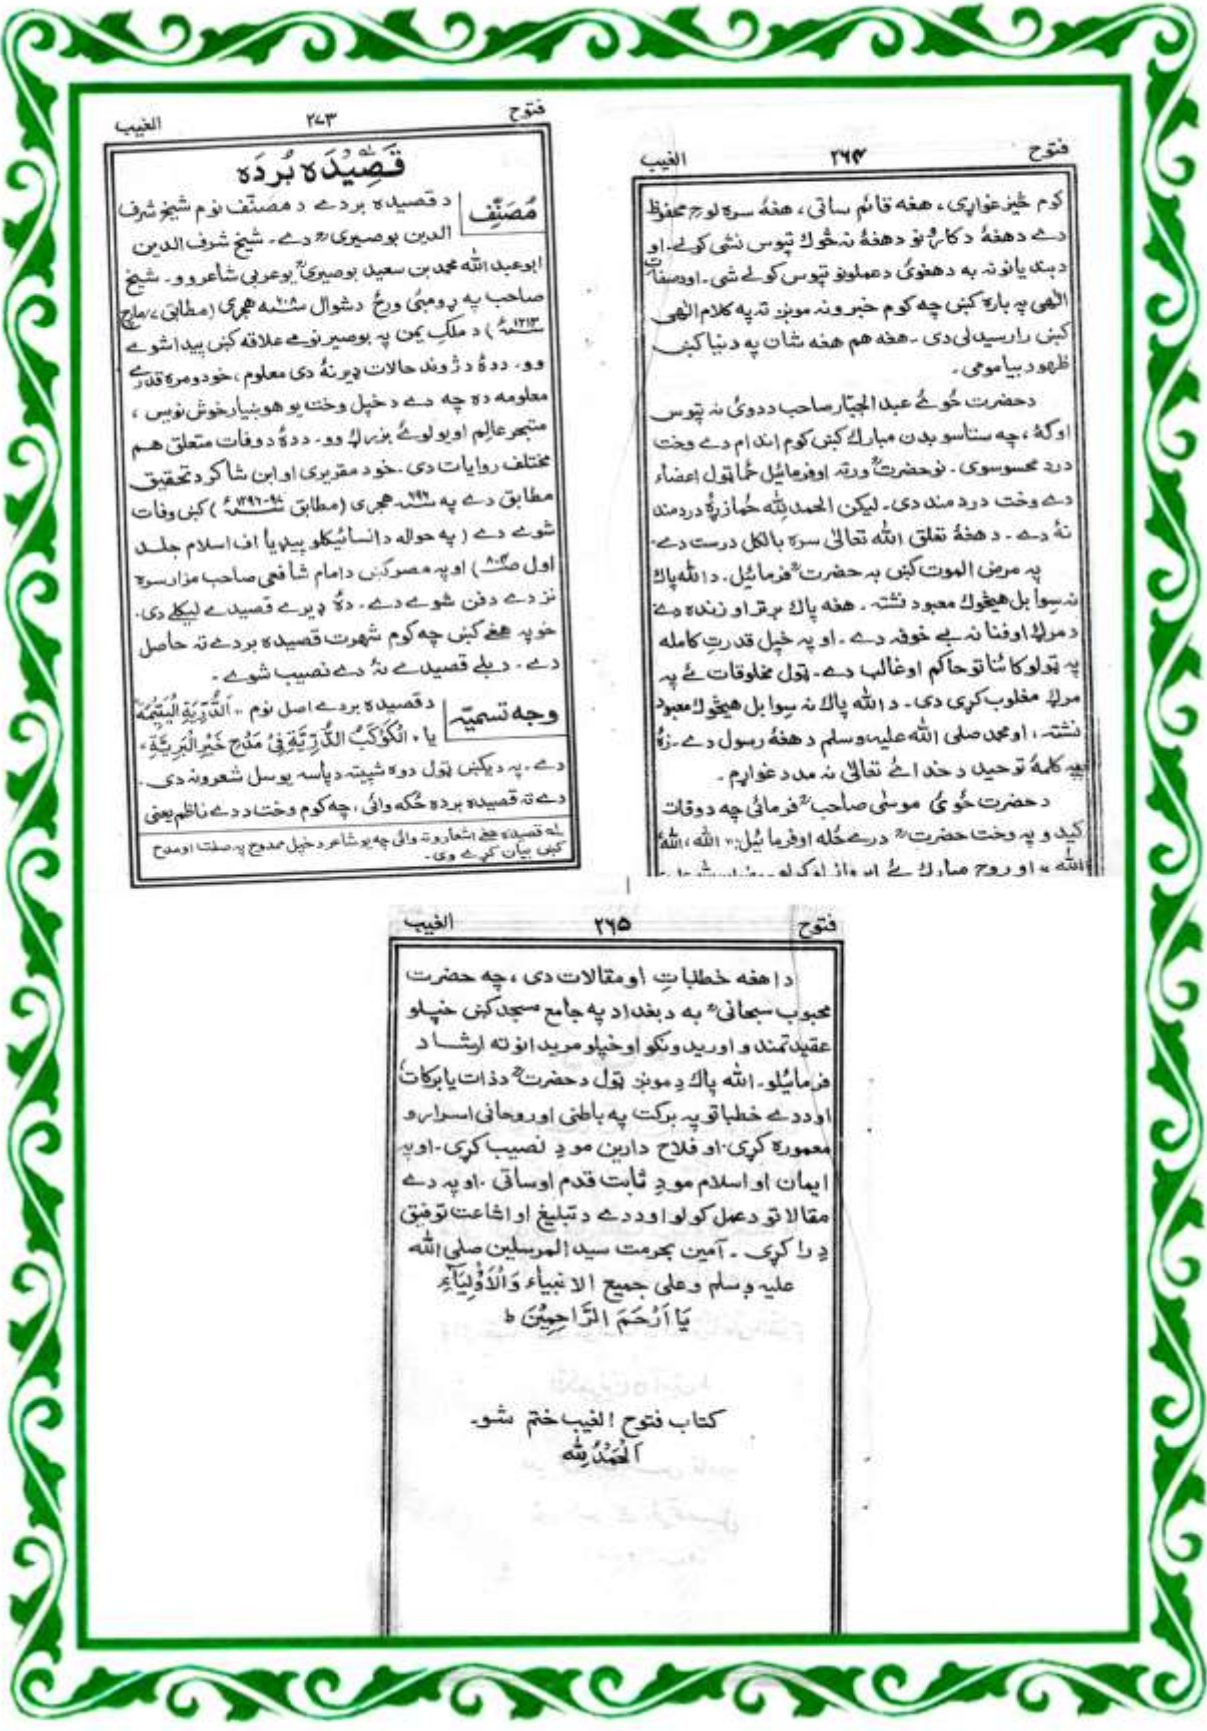 فتوح ۲۶۴ الغیب
کوم څیز غواړی، هغه قائم ساتی، هغهٔ سره لوحِ محفوظ
دے دهغهٔ دکارونو دهغهٔ نه څوك تپوس نشی کولے. او
دبندیانو نه به دهغوئ دعملونو تپوس کولے شی. اودصفات
الٰهی په باره کښ چه کوم خبرونه مونږ ته په کلام الٰهی
کښ رارسیدلی دی. هغه هم هغه شان په دنیا کښ
ظهور بیا مومی.
دحضرت ځوئے عبد الجبّار صاحب ددوئ نه تپوس
اوکهٔ، چه ستاسو بدن مبارك کښ کوم اندام دے وخت
درد محسوسوی. نو حضرتؒ ورته اوفرمائیل ځما ټول اعضاء
دے وخت درد مند دی. لیکن الحمد لِلّٰه ځما زړهٔ درد مند
نهٔ دے. دهغهٔ تعلق اللّٰه تعالیٰ سره بالکل درست دے.
په مرض الموت کښ به حضرتؒ فرمائیل. د اللّٰه پاك
نه سِوا بل هیڅوك معبود نشته. هغه پاك برتر او زنده دے
د مرګ او فنا نه بے خوفه دے. او په خپل قدرتِ کامله
په ټولو کائناتو حاکم او غالب دے. ټول مخلوقات ئے په
مرګ مغلوب کړی دی. د اللّٰه پاك نه سِوا بل هیڅوك معبود
نشته، او محمد صلی اللّٰه علیه وسلم دهغهٔ رسول دے. زهٔ
په کلمهٔ توحید د خدائے تعالیٰ نه مدد غواړم.
د حضرت ځوئ موسٰی صاحبؒ فرمائی چه دوفات
کیدو په وخت حضرتؒ درے ځله اوفرمائیل: اللّٰه، اللّٰهُ
اللّٰه، او روح مبارك ئے
فتوح ۲۷۳ الغیب
قَصِیْدَه بُردَه
مُصَنِّف
د قصیده بردے د مصنّف نوم شیخ شرف
الدین بوصیریؒ دے. شیخ شرف الدین
ابوعبد اللّٰه محمد بن سعید بوصیریؒ یو عربی شاعر وو. شیخ
صاحب په ړومبئ ورځ د شوال ۶۰۸ هجری (مطابق ۷ مارچ
۱۲۱۳ء) د ملکِ یمن په بوصیر نومے علاقه کښ پیدا شوے
وو. ددهٔ د ژوند حالات ډیر نهٔ دی معلوم، خو دومره قدرے
معلومه ده چه دے د خپل وخت یو هوښیار خوش نویس،
متبحر عالِم او یو لوئے بزرګ وو. ددهٔ د وفات متعلق هم
مختلف روایات دی. خو د مقریزی او ابن شاکر د تحقیق
مطابق دے په هجری (مطابق ء) کښ وفات
شوے دے (په حواله د انسائیکلو پیډیا آف اسلام جلد
اول) او په مصر کښ د امام شافعی صاحب مزار سره
نزدے دفن شوے دے. دهٔ ډیرے قصیدے لیکلے دی.
خو په هغے کښ چه کوم شهرت قصیده بردے ته حاصل
دے. د بلے قصیدے نهٔ دے نصیب شوے.
وجه تسمیّه
د قصیده بردے اصل نوم "اَلدُّرِّیَةِ الْیَتِیْمَه"
یا "اَلْکَوْکَبُ الدُّرِّیَّةِ فِیْ مَدْحِ خَیْرِ الْبَرِیَّةِ"
دے. په دیکښ ټول دوه شپیته دپاسه یو سل شعرونه دی.
دے ته قصیده برده ځکه وائی، چه کوم وخت د دے ناظم یعنی
له قصیده هغے اشعارو ته وائی چه یو شاعر د خپل ممدوح په صفت او مدح
کښ بیان کړے وی.
فتوح ۲۶۵ الغیب
دا هغه خطبات او مقالات دی، چه حضرت
محبوب سبحانیؒ به د بغداد په جامع مسجد کښ خپلو
عقیدتمندو اوریدونکو او خپلو مریدانو ته ارشاد
فرمائیلو. اللّٰه پاك دِ مونږ ټول د حضرتؒ د ذات بابرکات
او ددے خطباتو په برکت په باطنی او روحانی اسرارو
معموره کړی. او فلاح دارین مو دِ نصیب کړی. او په
ایمان او اسلام مو دِ ثابت قدم اوساتی. او په دے
مقالاتو د عمل کولو او ددے د تبلیغ او اشاعت توفیق
دِ راکړی. آمین بحرمت سید المرسلین صلی اللّٰه
علیه وسلم وعلی جمیع الانبیاء وَالْاَوْلِیَآءِ
یَا اَرْحَمَ الرَّاحِمِیْنَ ط
کتاب فتوح الغیب ختم شو.
اَلْحَمْدُ لِلّٰه